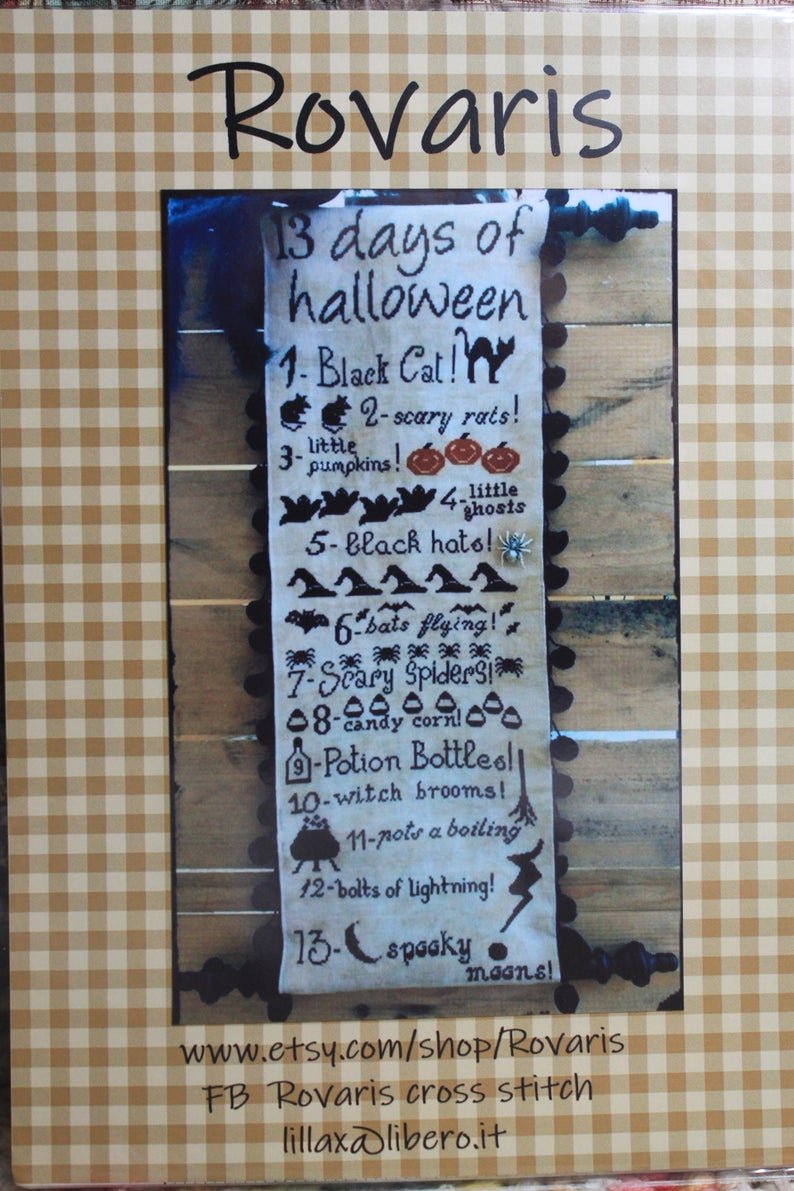 Rovaris
13 days of
halloween
1- Black Cat!
2- scary rats!
3- little
pumpkins!
4- little
ghosts
5- black hats!
6- bats flying!
7- Scary Spiders!
8- candy corn!
9 - Potion Bottles!
10- witch brooms!
11- pots a boiling
12- bolts of lightning!
13- spooky
moons!
www.etsy.com/shop/Rovaris
FB Rovaris cross stitch
lillax@libero.it